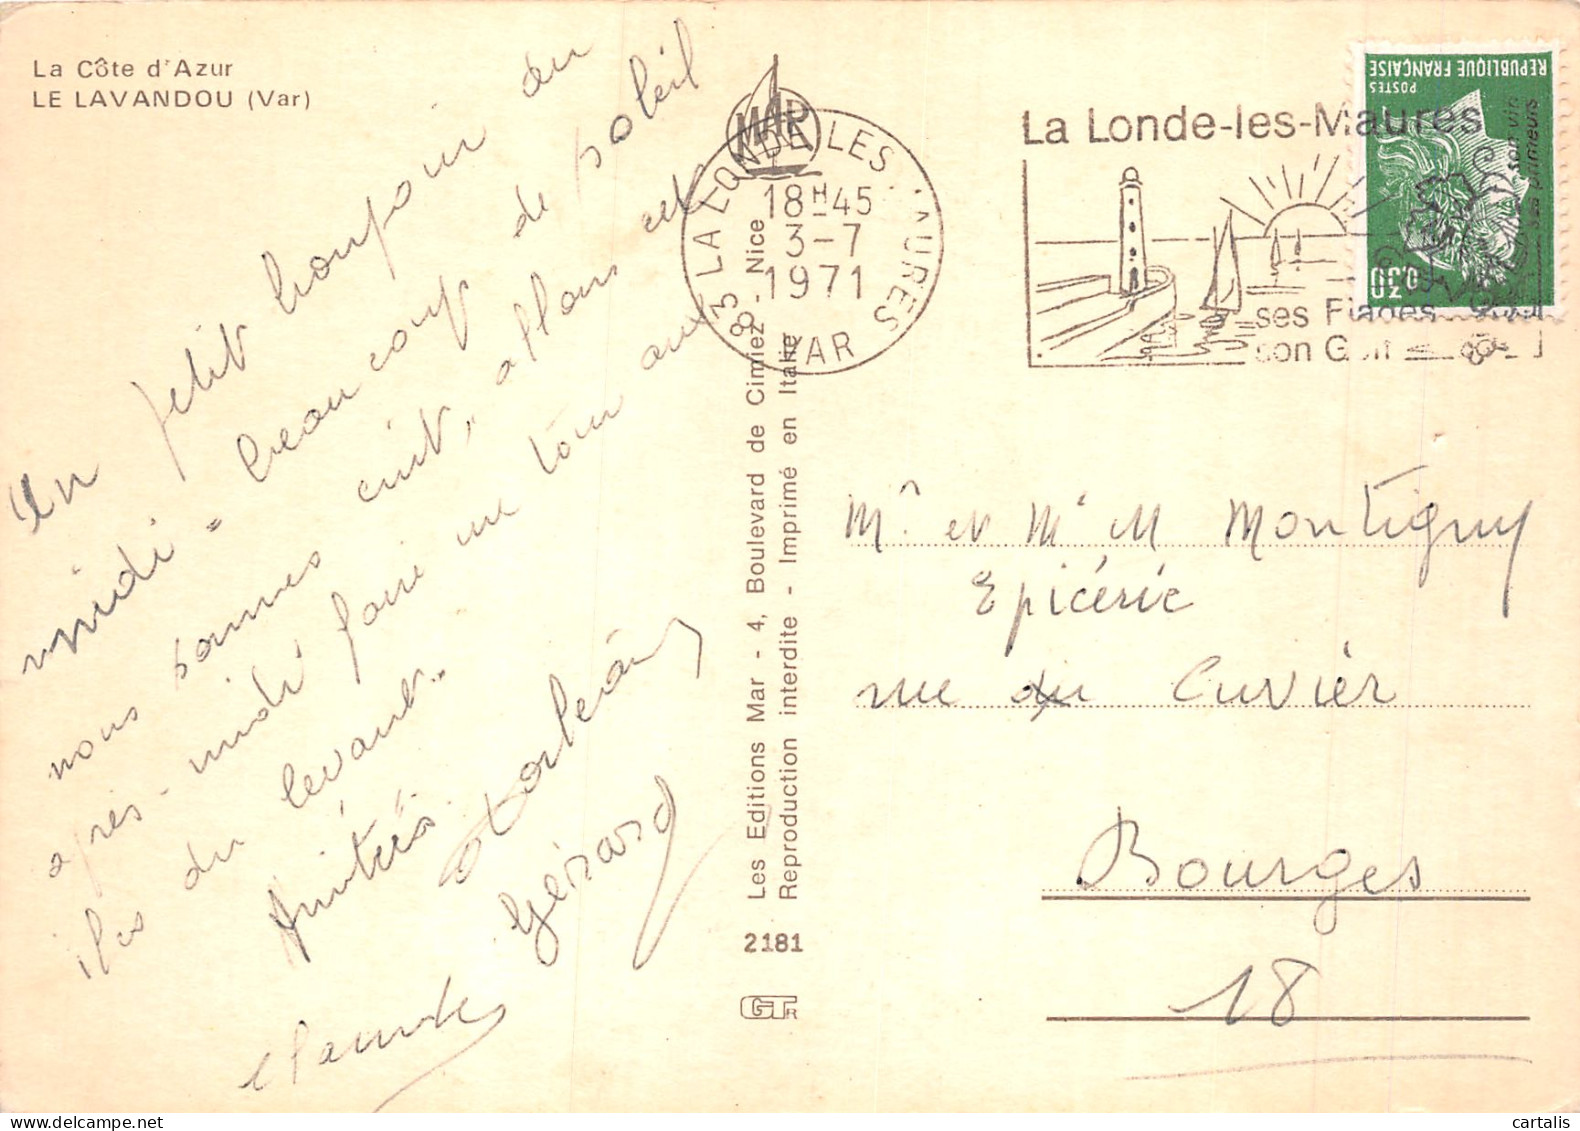 La Côte d'Azur
LE LAVANDOU (Var)
Un petit bonjour du
midi - beaucoup de soleil
nous sommes cuits, allons cet
après-midi faire un tour aux
iles du levant..
Amitiés.
Gérard
MAR
83 LA LONDE LES MAURES
VAR
18H45
3-7
1971
La Londe-les-Maures
ses Plages
son Golf
son vin
ses primeurs
POSTES
REPUBLIQUE FRANÇAISE
0,30
Les Editions Mar - 4, Boulevard de Cimiez - Nice
Reproduction interdite - Imprimé en Italie
2181
GTR
Mr et Me M Montigny
Epicérie
rue du Cuvier
Bourges
18
www.delcampe.net
cartalis